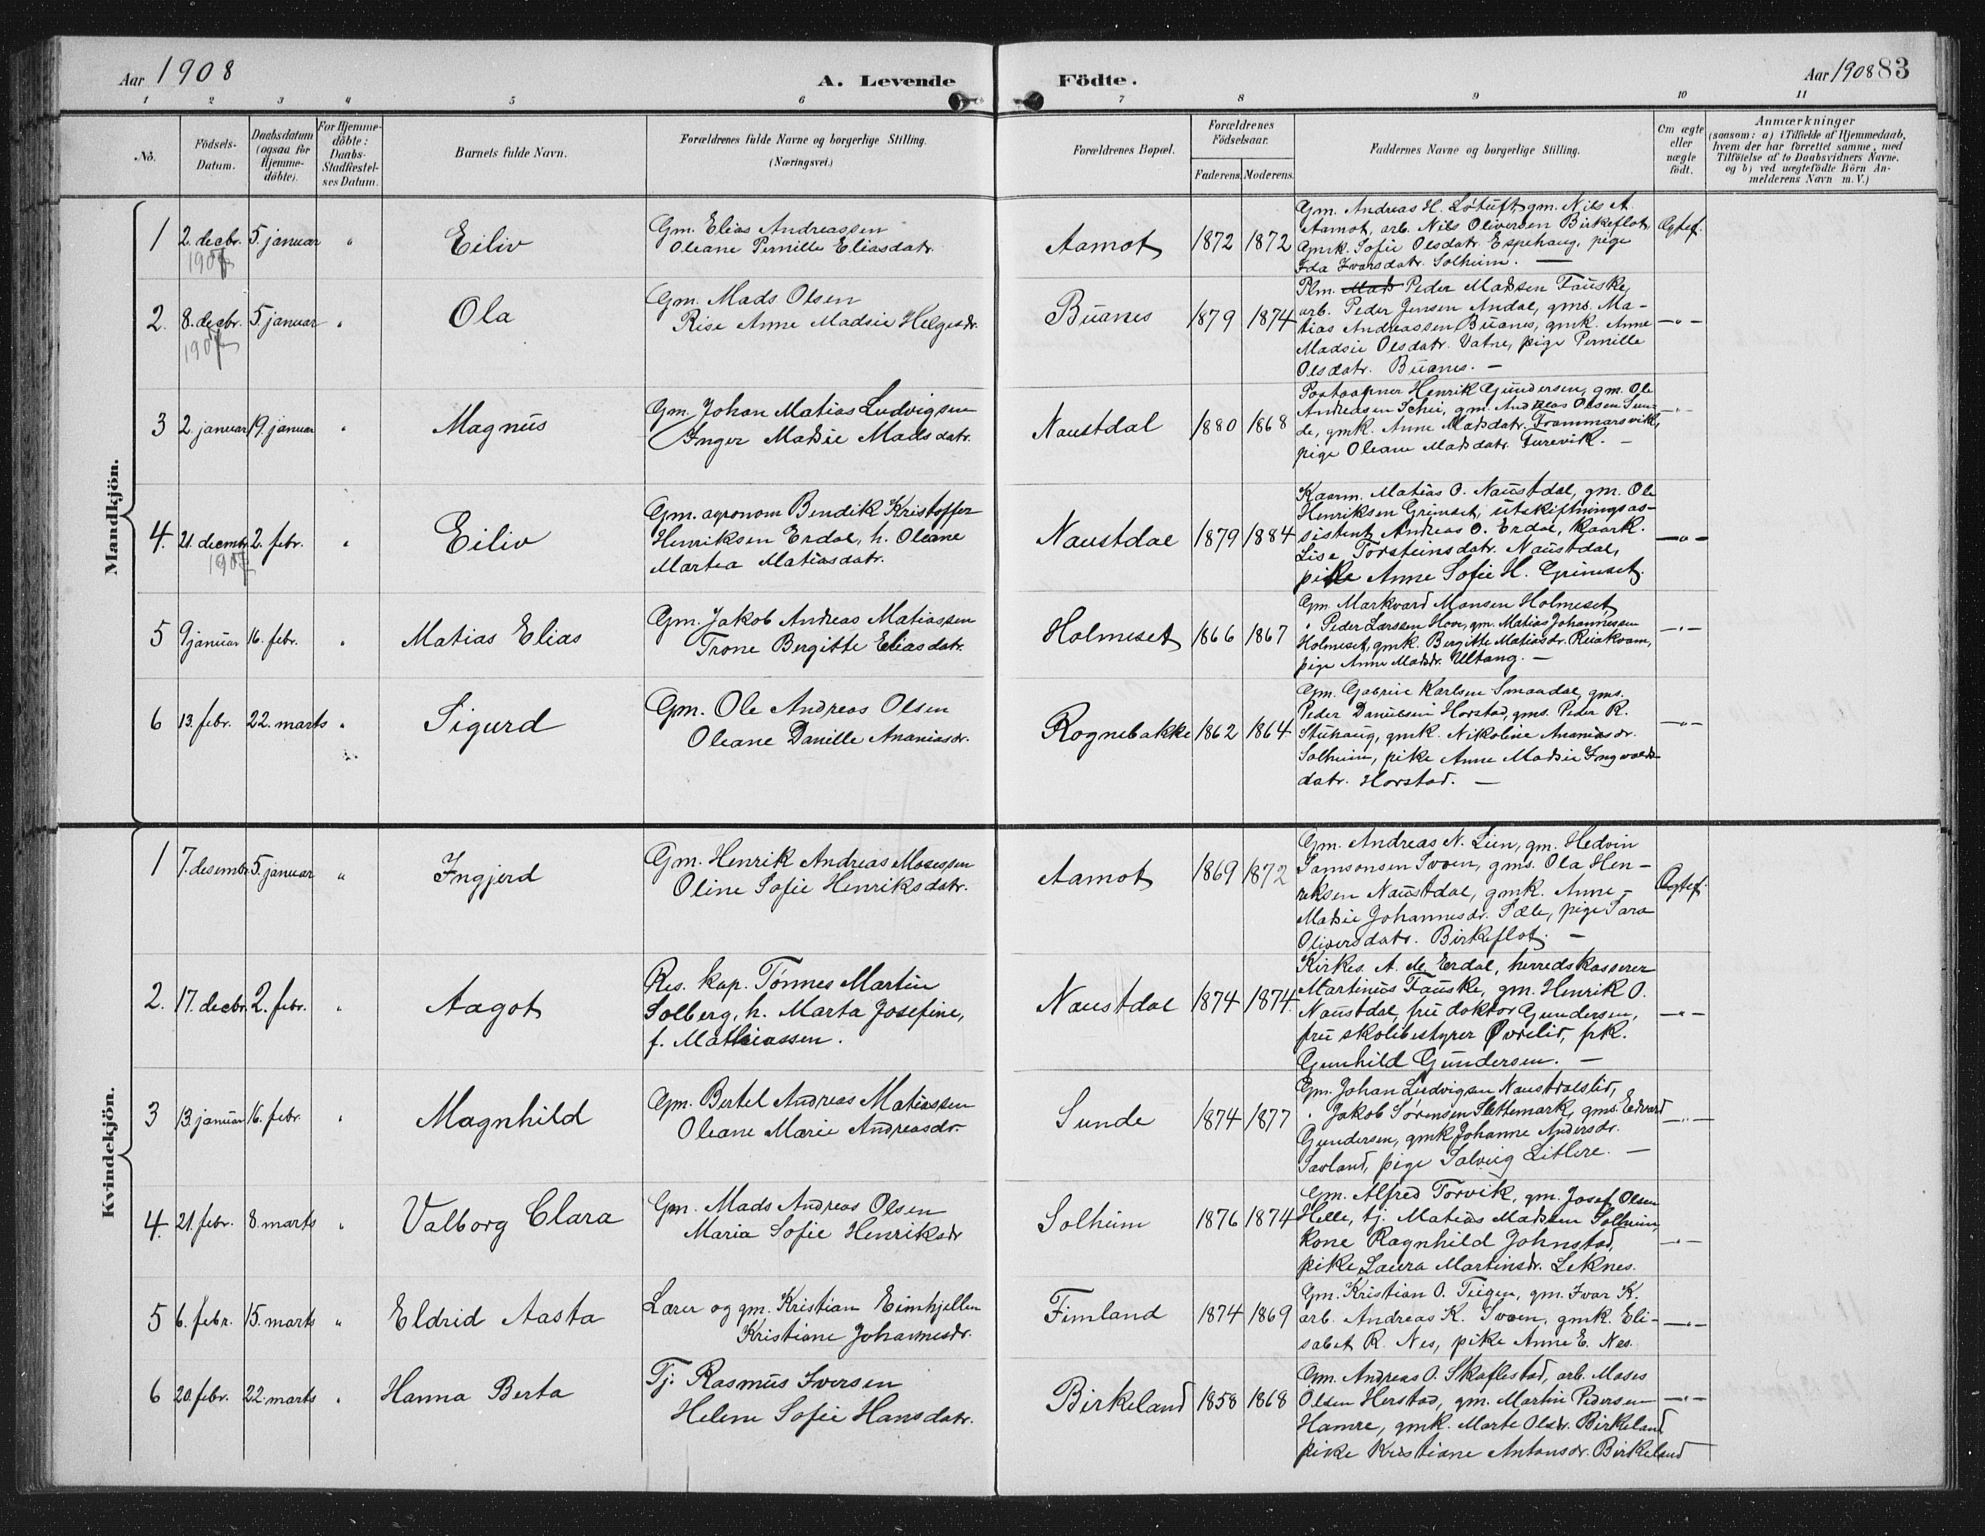 Aar 1908
A. Levende
Födte.
Aar 1908 83
1 2 3 4 5 6 7 8 9 10 11
No.
Födsels-
Datum.
Daabsdatum
(ogsaa for
Hjemme-
döbte).
For Hjemme-
döbte:
Daabs-
Stadfæstel-
ses Datum.
Barnets fulde Navn.
Forældrenes fulde Navne og borgerlige Stilling.
(Næringsvei.)
Forældrenes Bopæl.
Forældrenes
Födselsaar.
Faderens. Moderens.
Faddernes Navne og borgerlige Stilling.
Om ægte
eller
uægte
födt.
Anmærkninger
(saasom: a) i Tilfælde af Hjemmedaab,
hvem der har forrettet samme, med
Tilföielse af to Daabsvidners Navne,
og b) ved uægtefödte Börn An-
melderens Navn m. V.)
Mandkjön.
1 2. decbr. 1907 5. januar " Eiliv
Gm. Elias Andreassen
Oleane Pernille Eliasdatr.
Aamot 1872 1872
Gm. Andreas H. Løtuft, gm. Nils A.
Aamot, arb. Nils Oliversen Birkeflot,
gmk. Sofie Olsdatr. Espehaug, pige
Ida Ivarsdatr. Solheim. —
Ægtef.
2. 8. decbr. 1907 5 januar " Ola
Gm. Mads Olsen
Rise Anne Madsie Helgesdr.
Buanes 1879 1874
Plm. Mads Peder Madsen Fauske,
arb. Peder Jensen Andal, gms. Ma-
tias Andreassen Buanes, gmk. Anne
Madsie Olsdatr. Vatne, pige Pernille
Olsdatr. Buanes. —
—"—
3 2 januar 19. januar " Magnus
Gm. Johan Matias Ludvigsen
Inger Madsie Madsdatr.
Naustdal 1880 1868
Postaapner Henrik Gundersen, gm. Ole
Andreasen Schei, gm. Andreas Olsen Sun-
de, gmk. Anne Madsdatr. Frammarsvik,
pige Oleane Madsdatr. Furevik. —
—"—
4. 21. decembr. 1907 2. febr. " Eiliv
Gm. agronom Bendik Kristoffer
Henriksen Erdal, h. Oleane
Martea Matiasdatr.
Naustdal 1879 1884
Kaarm. Matias O. Naustdal, gm. Ole
Henriksen Grimset, utskiftningsas-
sistent Andreas O. Erdal, kaark.
Lise Torsteinsdatr. Naustdal,
pike Anne Sofie H. Grimset.
—"—
5 9 januar 16. febr. " Matias Elias
Gm. Jakob Andreas Matiassen
Trone Bergitte Eliasdatr.
Holmeset 1866 1867
Gm. Markvard Monsen Holmeset,
" Peder Larssen Hove, gm. Matias Johannessen
Holmeset, gmk. Bergitte Matiasdr. Reiakvam,
pige Anne Madsdr. Ultang. —
—"—
6 13. febr. 22. marts " Sigurd
Gm. Ole Andreas Olsen
Oleane Danille Ananiasdr.
Rognebakke 1862 1864
Gm. Gabriel Karlsen Smaadal, gms.
Peder Danielsen Horstad, gms. Peder R.
Stuhaug, gmk. Nikoline Ananiasdr.
Solheim, pike Anne Madsie Ingvalds-
datr. Horstad. —
—"—
Kvindekjön.
1 7. desembr. 5. januar " Ingjerd
Gm. Henrik Andreas Mosessen
Oline Sofie Henriksdatr.
Aamot 1869 1872
Gm. Andreas N. Lien, gm. Hedvin
Samsonsen Svoen, gms. Ola Hen-
riksen Naustdal, gmk. Anne
Madsie Johannesdr. Sæle, pige Sara
Oliversdatr. Birkeflot. —
Ægtef.
2. 17. decbr. 2. febr. " Aagot
Res. kap. Tønnes Martin
Solberg, h. Marta Josefine,
f. Mathiassen.
Naustdal 1874 1874.
Kirkes. A. de Erdal, herredskasserer
Martinus Fauske, gm. Henrik O.
Naustdal, fru doktor Gundersen,
fru skolebestyrer Øvrelid, frk.
Gunhild Gundersen. —
—"—
3 13. januar 16. febr. " Magnhild
Gm. Bertel Andreas Matiassen
Oleane Marie Andreasdr.
Sunde 1874 1877
Gm. Johan Ludvigsen Naustdalslid,
" Jakob Sørensen Slettemark, gms. Edvard
Gundersen, gmk. Johanne Andersdr.
Savland, pige Solveig Litlere. —
—"—
4. 21. febr. 8. marts " Valborg Clara
Gm. Mads Andreas Olsen
Maria Sofie Henriksdr.
Solheim 1876 1874
Gm. Alfred Torvik, gm. Josef Olsen
Helle, tj. Matias Madssen Solheim,
kone Ragnhild Johnstad,
pike Laura Martinsdr. Leknes.
—"—
5 6. febr. 15. marts " Eldrid Aasta
Lærer og gm. Kristian Eimhjellen
Kristiane Johannesdr.
Fimland 1874 1869
Gm. Kristian O. Teigen, gm. Ivar K.
arb. Andreas K. Svoen, gmk. Eli-
sabet R. Nes, pike Anne E. Nes.
—"—
6 20. febr. 22. marts " Hanna Berta
Tj. Rasmus Iversen
Helene Sofie Hansdatr.
Birkeland 1858 1868
Gm. Andreas O. Skaflestad, arb. Moses
Olsen Herstad, gm. Martin Pedersen
Hamre, gmk. Marte Olsdr. Birkeland
pike Kristiane Antonsdr. Birkeland
—"—